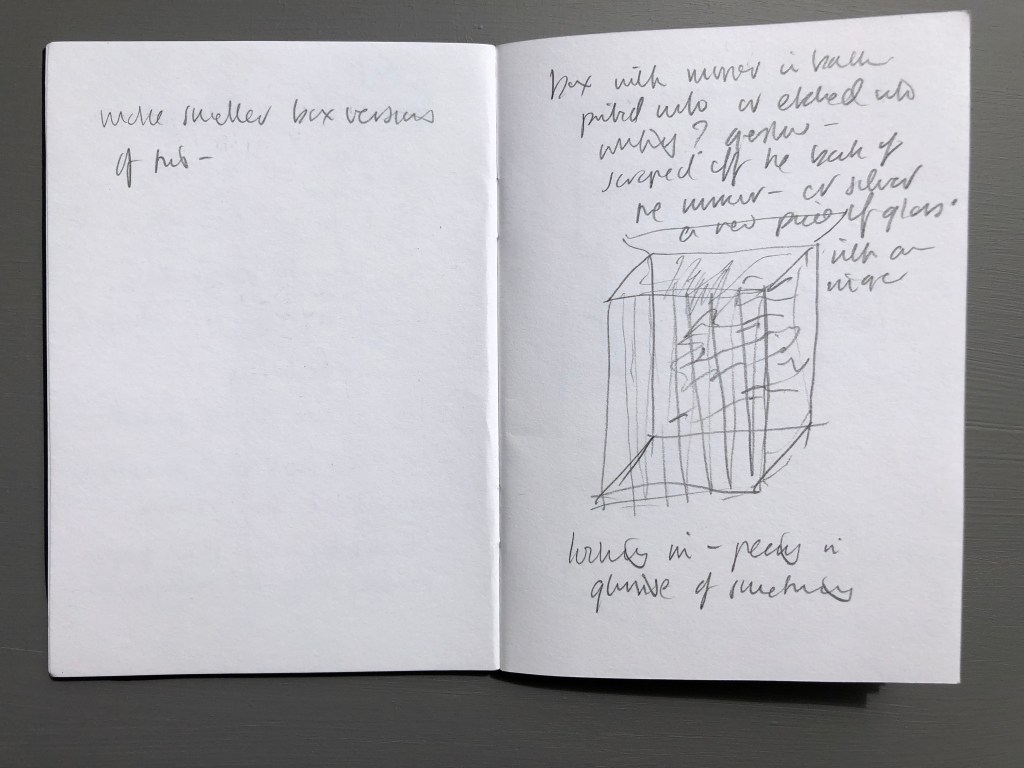 make smaller box versions
of this -
box with mirror in back
printed into or etched into
writing? gesture -
scraped off the back of
the mirror - or silver
a new piece of glass.
with an
image
looking in - peeking in
glimpse of something